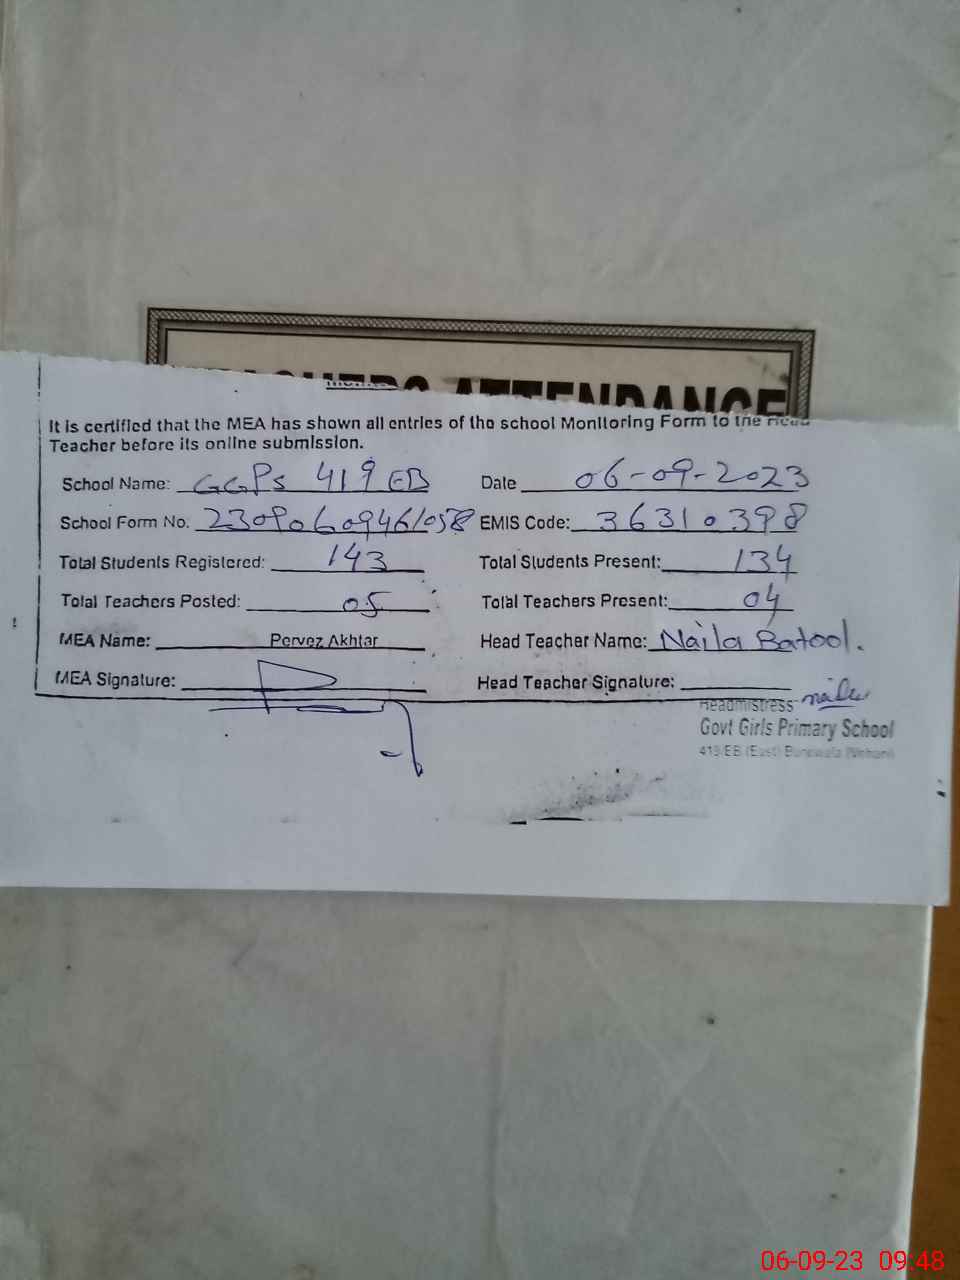 TEACHERS ATTENDANCE
It is certified that the MEA has shown all entries of the school Monitoring Form to the Head
Teacher before its online submission.
School Name: GGPS 419 EB Date 06-09-2023
School Form No. 23090609461058 EMIS Code: 36310398
Total Students Registered: 143 Total Students Present: 134
Total Teachers Posted: 05 Total Teachers Present: 04
MEA Name: Pervez Akhtar Head Teacher Name: Naila Batool.
MEA Signature: Head Teacher Signature:
Headmistress Naila
Govt Girls Primary School
419/EB (East) Burewala (Vehari)
06-09-23 09:48